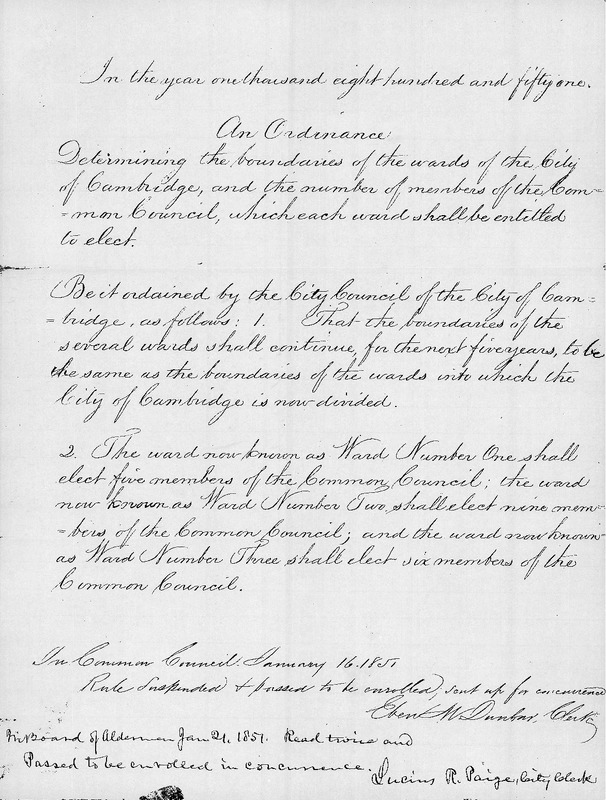 In the year one thousand eight hundred and fifty one.
An Ordinance
Determining the boundaries of the wards of the City
of Cambridge, and the number of members of the Com=
=mon Council, which each ward shall be entitled
to elect.
Be it ordained by the City Council of the City of Cam=
=bridge, as follows: 1. That the boundaries of the
several wards shall continue, for the next five years, to be
the same as the boundaries of the wards into which the
City of Cambridge is now divided.
2. The ward now known as Ward Number One shall
elect five members of the Common Council; the ward
now known as Ward Number Two, shall elect nine mem=
=bers of the Common Council; and the ward now known
as Ward Number Three shall elect six members of the
Common Council.
In Common Council January 16. 1851
Rule Suspended & passed to be enrolled, sent up for concurrence
Eben W Dunbar Clerk
In Board of Aldermen Jan 21. 1851. Read twice and
Passed to be enrolled in concurrence.
Lucius R. Paige, City Clerk